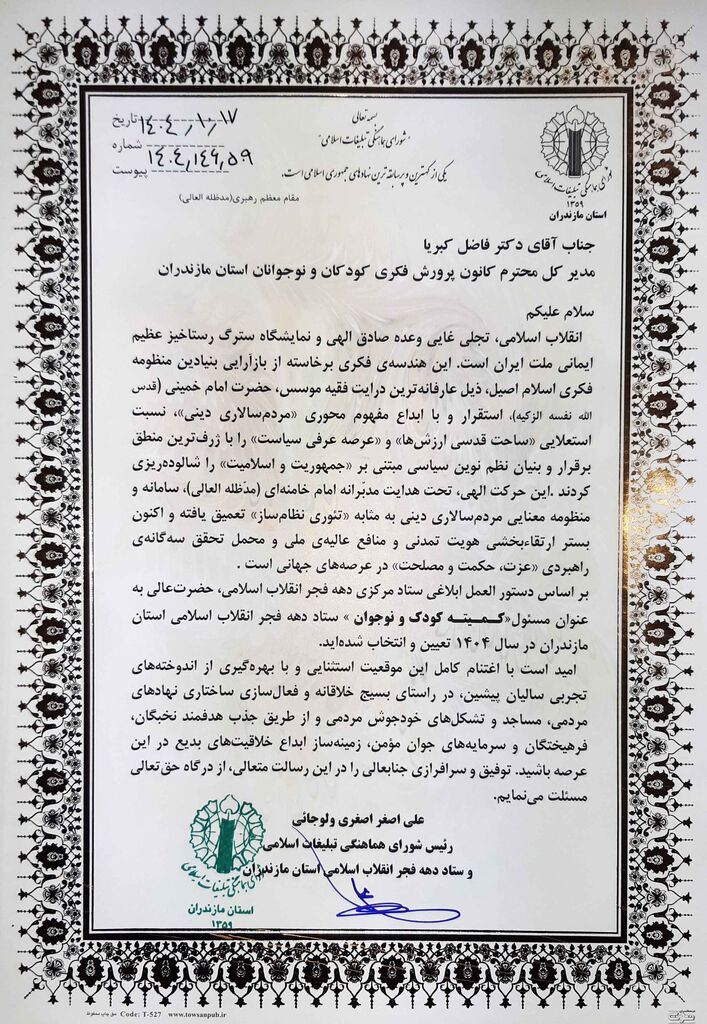 بسمه تعالی
"شورای هماهنگی تبلیغات اسلامی"
یکی از کهنترین و پرسابقه‌ترین نهادهای جمهوری اسلامی است.
مقام معظم رهبری(مدظله العالی)
تاریخ ۱۴۰۴,۱۰,۱۷
شماره ۱۴۰۴,۱۴۶,۵۹
پیوست
شورای هماهنگی تبلیغات اسلامی
۱۳۵۹
استان مازندران
جناب آقای دکتر فاضل کبریا
مدیر کل محترم کانون پرورش فکری کودکان و نوجوانان استان مازندران
سلام علیکم
انقلاب اسلامی، تجلی غایی وعده صادق الهی و نمایشگاه سترگ رستاخیز عظیم
ایمانی ملت ایران است. این هندسه‌ی فکری برخاسته از بازآرایی بنیادین منظومه
فکری اسلام اصیل، ذیل عارفانه‌ترین درایت فقیه موسس، حضرت امام خمینی (قدس
الله نفسه الزکیه)، استقرار و با ابداع مفهوم محوری «مردم‌سالاری دینی»، نسبت
استعلایی «ساحت قدسی ارزش‌ها» و «عرصه عرفی سیاست» را با ژرف‌ترین منطق
برقرار و بنیان نظم نوین سیاسی مبتنی بر «جمهوریت و اسلامیت» را شالوده‌ریزی
کردند .این حرکت الهی، تحت هدایت مدبرانه امام خامنه‌ای (مدّظله العالی)، سامانه و
منظومه معنایی مردم‌سالاری دینی به مثابه «تئوری نظام‌ساز» تعمیق یافته و اکنون
بستر ارتقاءبخشی هویت تمدنی و منافع عالیه‌ی ملی و محمل تحقق سه‌گانه‌ی
راهبردی «عزت، حکمت و مصلحت» در عرصه‌های جهانی است .
بر اساس دستور العمل ابلاغی ستاد مرکزی دهه فجر انقلاب اسلامی، حضرت‌عالی به
عنوان مسئول«کـمیـتـه کودک و نوجوان » ستاد دهه فجر انقلاب اسلامی استان
مازندران در سال ۱۴۰۴ تعیین و انتخاب شده‌اید.
امید است با اغتنام کامل این موقعیت استثنایی و با بهره‌گیری از اندوخته‌های
تجربی سالیان پیشین، در راستای بسیج خلاقانه و فعال‌سازی ساختاری نهادهای
مردمی، مساجد و تشکل‌های خودجوش مردمی و از طریق جذب هدفمند نخبگان،
فرهیختگان و سرمایه‌های جوان مؤمن، زمینه‌ساز ابداع خلاقیت‌های بدیع در این
عرصه باشید. توفیق و سرافرازی جنابعالی را در این رسالت متعالی، از درگاه حق‌تعالی
مسئلت می‌نمایم.
علی اصغر اصغری ولوجائی
رئیس شورای هماهنگی تبلیغات اسلامی
و ستاد دهه فجر انقلاب اسلامی استان مازندران
شورای هماهنگی تبلیغات اسلامی
استان مازندران
۱۳۵۹
حق چاپ محفوظ Code: T-527 www.towsanpub.ir